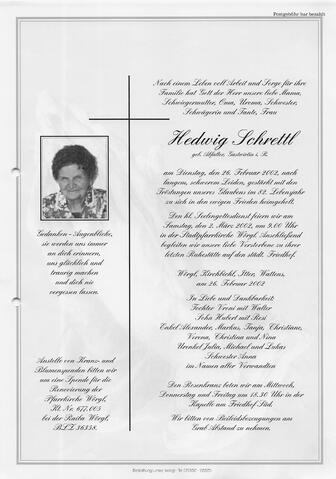 Postgebühr bar bezahlt
Nach einem Leben voll Arbeit und Sorge für ihre
Familie hat Gott der Herr unsere liebe Mama,
Schwiegermutter, Oma, Uroma, Schwester,
Schwägerin und Tante, Frau
Hedwig Schrettl
geb. Aßfaller, Gastwirtin i. R.
am Dienstag, den 26. Februar 2002, nach
langem, schwerem Leiden, gestärkt mit den
Tröstungen unseres Glaubens im 82. Lebensjahr
zu sich in den ewigen Frieden heimgeholt.
Den hl. Seelengottesdienst feiern wir am
Samstag, den 2. März 2002, um 9.00 Uhr
in der Stadtpfarrkirche Wörgl. Anschließend
begleiten wir unsere liebe Verstorbene zu ihrer
letzten Ruhestätte auf den städt. Friedhof.
Wörgl, Kirchbichl, Itter, Wattens,
am 26. Februar 2002
In Liebe und Dankbarkeit:
Tochter Vroni mit Walter
Sohn Hubert mit Resi
Enkel Alexander, Markus, Tanja, Christiane,
Verena, Christina und Nina
Urenkel Julia, Michael und Lukas
Schwester Anna
im Namen aller Verwandten
Den Rosenkranz beten wir am Mittwoch,
Donnerstag und Freitag um 18.30 Uhr in der
Kapelle am Friedhof Süd.
Wir bitten von Beileidsbezeugungen am
Grab Abstand zu nehmen.
Gedanken - Augenblicke,
sie werden uns immer
an dich erinnern,
uns glücklich und
traurig machen
und dich nie
vergessen lassen.
Anstelle von Kranz- und
Blumenspenden bitten wir
um eine Spende für die
Renovierung der
Pfarrkirche Wörgl,
Kt. Nr. 677.005
bei der Raiba Wörgl
BLZ 36358.